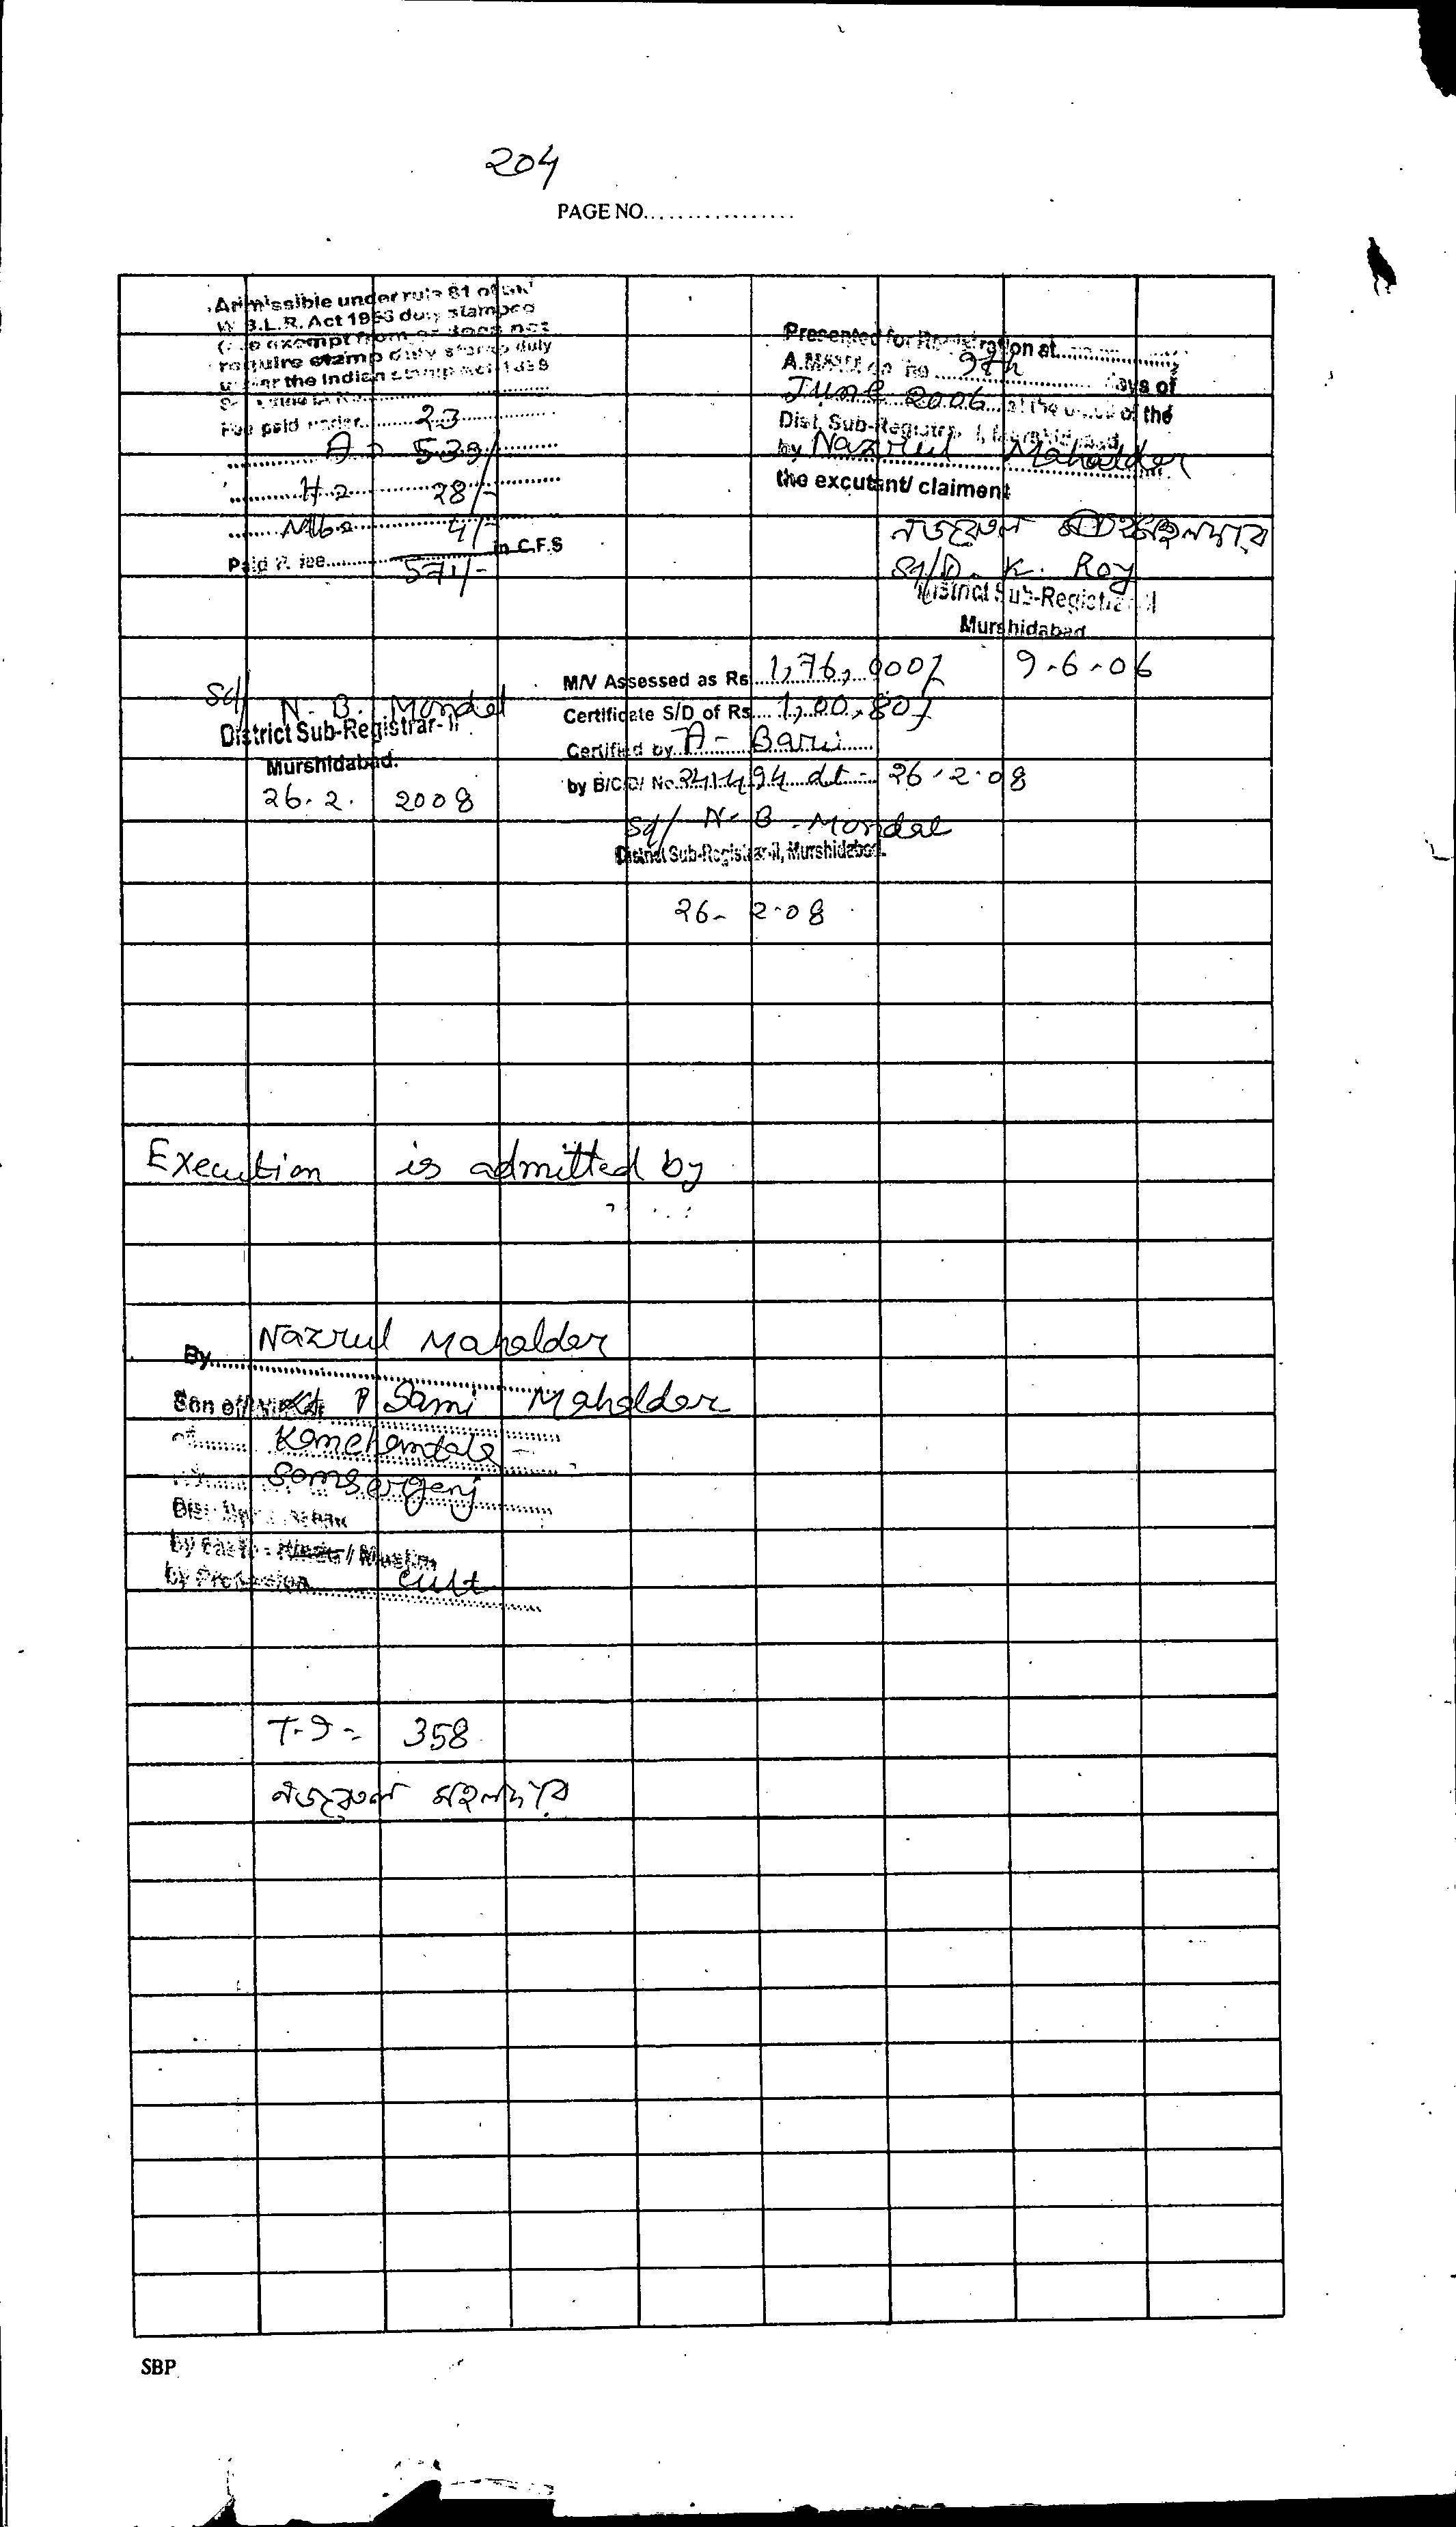 204
PAGE NO.................
Admissible under rule 81 of
W.B.L.R. Act 1956 duly stamped
exempt from or does not
require stamp duly stamp duly
under the Indian stamp act 1899
Fee paid under 23
A = 539/-
H = 28/-
Mb = 4/-
Paid P. fee 571/- in C.F.S
Sd/ N. B. Mondal
District Sub-Registrar-II
Murshidabad.
26. 2. 2008
Presented for Registration at
A.M. on the 9th days of
June 2006 at the office of the
Dist. Sub-Registrar II, Murshidabad
by Nazrul Mahalder
the excutant/ claiment
নজরুল মহলদার
Sd/D. K. Roy
District Sub-Registrar II
Murshidabad
9-6-06
M/V Assessed as Rs 1,76,000/
Certificate S/D of Rs 1,00,80/
Certified by A- Bari
by B/C/D/ No. dt- 26.2.08
Sd/ N- B -Mondal
District Sub-Registrar-II, Murshidabad.
26- 2-08
Execution is admitted by
By Nazrul Mahalder
Son of Sami Mahalder
of Kanchantala
Samsergenj
Dist
by Caste - Hindu / Muslim
by Profession Cult
T.I = 358
নজরুল মহলদার
SBP